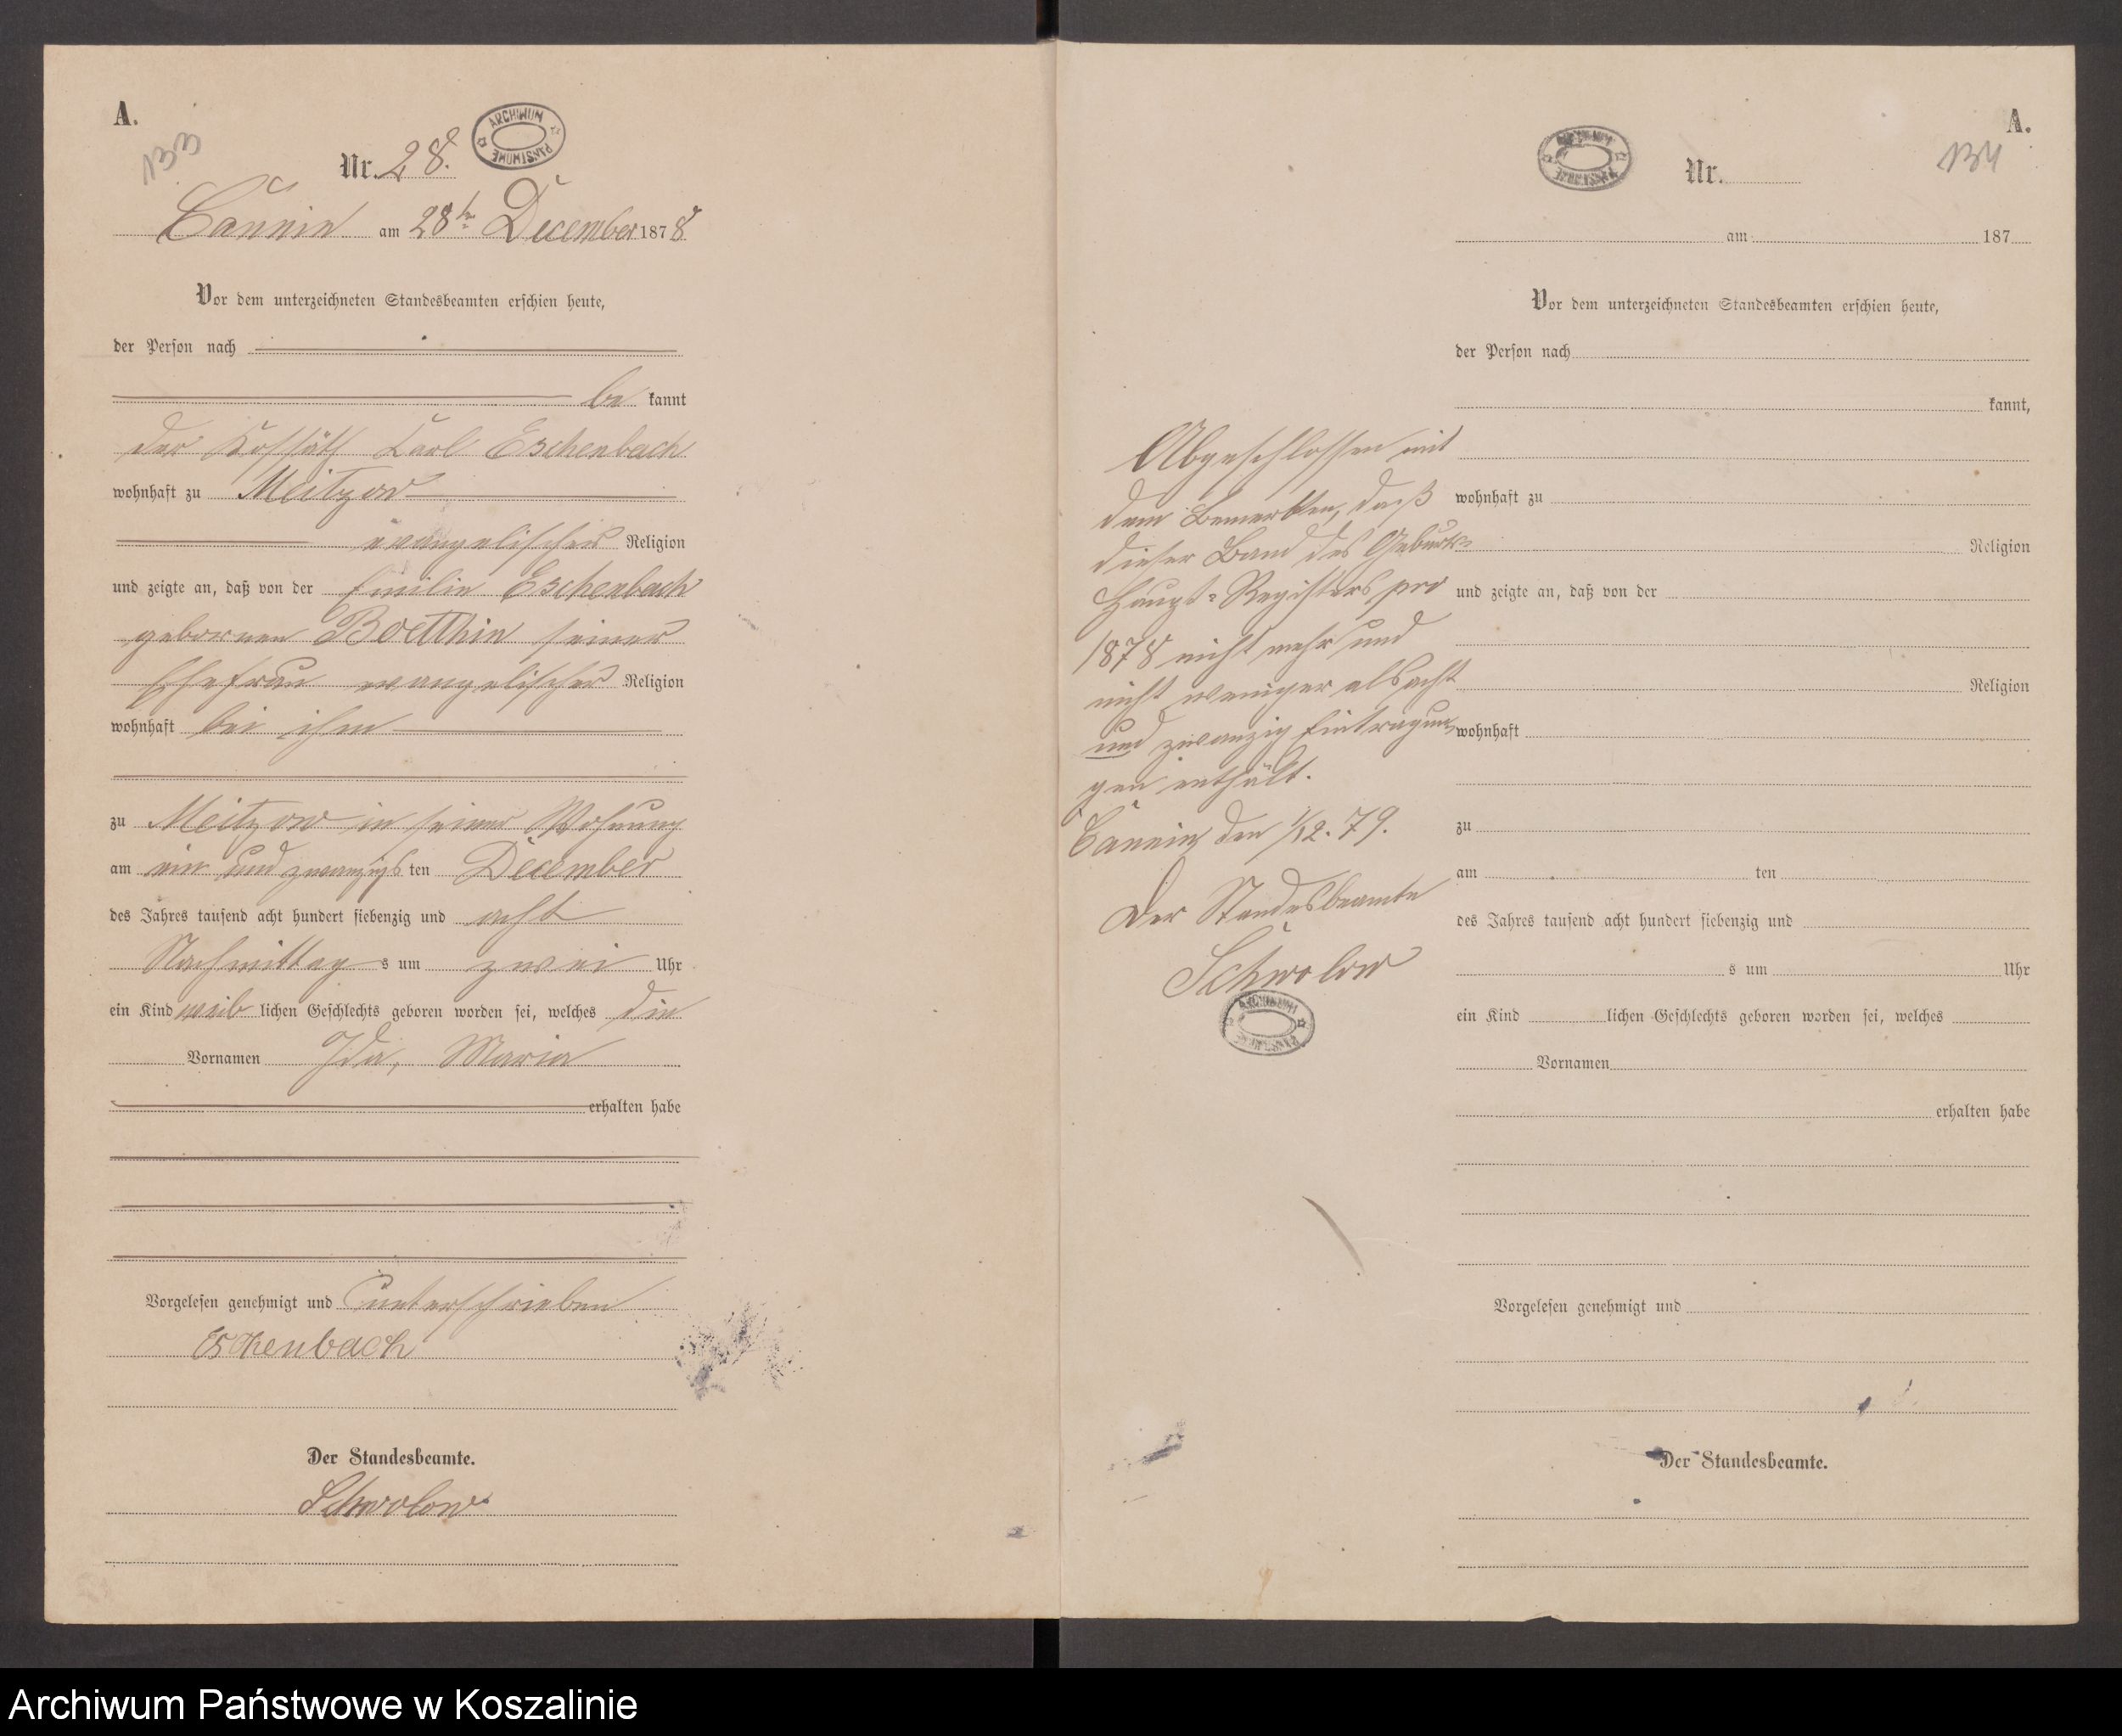 A.
133
Nr. 28.
ARCHIWUM PAŃSTWOWE
Cannin am 28ten December 1878
Vor dem unterzeichneten Standesbeamten erschien heute,
der Person nach
be kannt
der Kossäth Carl Eschenbach
wohnhaft zu Meitzow
evangelischer Religion
und zeigte an, daß von der Emilie Eschenbach
geborenen Boetthin seiner
Ehefrau evangelischer Religion
wohnhaft bei ihm
zu Meitzow in seiner Wohnung
am ein und zwanzigs ten December
des Jahres tausend acht hundert siebenzig und acht
Nachmittag s um zwei Uhr
ein Kind weib lichen Geschlechts geboren worden sei, welches die
Vornamen Ida, Maria
erhalten habe
Vorgelesen genehmigt und unterschrieben
Eschenbach
Der Standesbeamte.
Schwolow
A.
134
ARCHIWUM PAŃSTWOWE
Nr.
am 187
Vor dem unterzeichneten Standesbeamten erschien heute,
der Person nach
kannt,
wohnhaft zu
Religion
und zeigte an, daß von der
Religion
wohnhaft
zu
am ten
des Jahres tausend acht hundert siebenzig und
s um Uhr
ein Kind lichen Geschlechts geboren worden sei, welches
Vornamen
erhalten habe
Vorgelesen genehmigt und
Der Standesbeamte.
Abgeschlossen mit
dem Bemerken, daß
dieser Band des Geburts-
Haupt-Registers pro
1878 nicht mehr und
nicht weniger als acht
und zwanzig Eintragun-
gen enthält.
Cannin den 1/12. 79.
Der Standesbeamte
Schwolow
ARCHIWUM PAŃSTWOWE
Archiwum Państwowe w Koszalinie